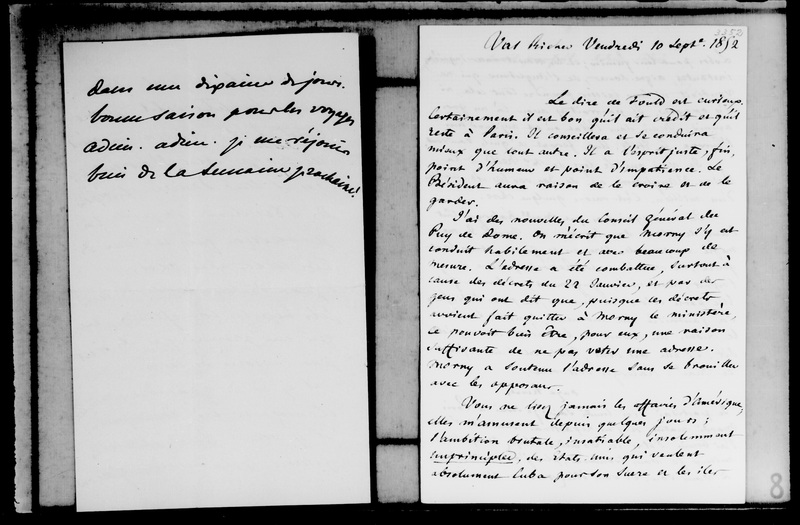 dans une dixaine de jours.
bonne saison pour les voyages
adieu. adieu. je me réjouis
bien de la semaine prochaine!
3352
Val Richer Vendredi 10 Septe. 1852
Le dire de Fould est curieux.
Certainement il est bon qu'il ait crédit et qu'il
reste à Paris. Il conseillera et se conduira
mieux que tout autre. Il a l'esprit juste, fin,
point d'humeur et point d'impatience. Le
Président aura raison de le croire et de le
garder.
J'ai des nouvelles du Conseil général du
Puy de Dome. On m'écrit que Morny s'y est
conduit habilement et avec beaucoup de
mesure. L'adresse a été combattue, surtout à
cause des décrets du 22 Janvier, et par des
gens qui ont dit que, puisque ces décrets
avoient fait quitter à Morny le ministère,
ce pouvoit bien être, pour eux, une raison
suffisante de ne pas voter une adresse.
Morny a soutenu l'adresse sans se brouiller
avec les opposans.
Vous ne lisez jamais les affaires d'Amérique;
elles m'amusent depuis quelques jours;
l'ambition brutale, insatiable, insolemment
unprincipled, des Etats-Unis qui veulent
absolument Cuba pour son sucre et les iles
8